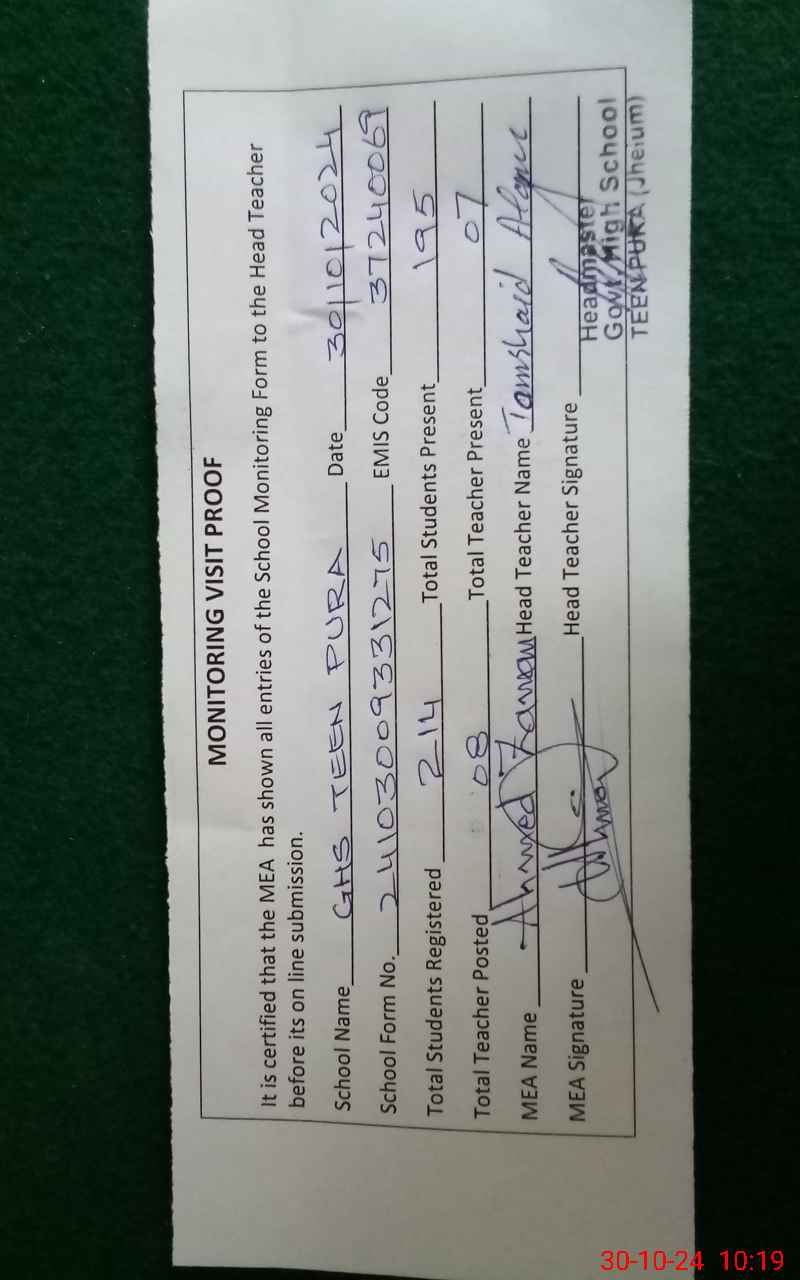 MONITORING VISIT PROOF
It is certified that the MEA has shown all entries of the School Monitoring Form to the Head Teacher
before its on line submission.
School Name GHS TEEN PURA Date 30/10/2024
School Form No. 24103009331275 EMIS Code 37240069
Total Students Registered 214 Total Students Present 195
Total Teacher Posted 08 Total Teacher Present 07
MEA Name Ahmed Head Teacher Name Jamshaid
MEA Signature Head Teacher Signature
Headmaster
Govt. High School
TEEN PURA (Jhelum)
30-10-24 10:19